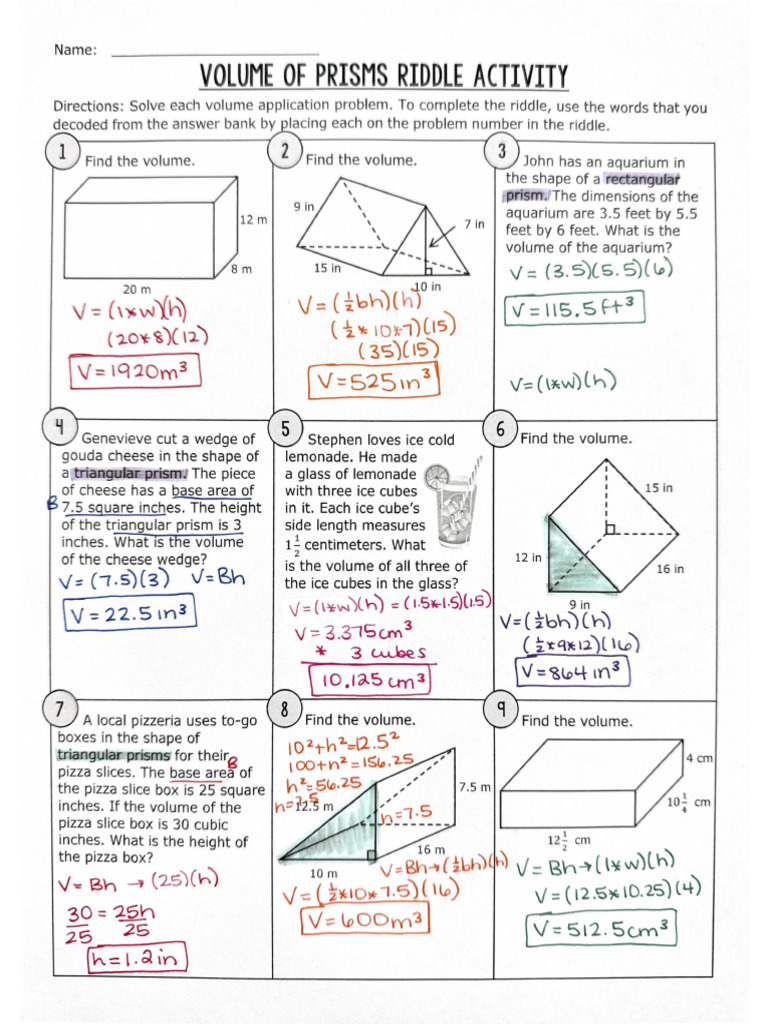 Name:
VOLUME OF PRISMS RIDDLE ACTIVITY
Directions: Solve each volume application problem. To complete the riddle, use the words that you
decoded from the answer bank by placing each on the problem number in the riddle.
1
Find the volume.
12 m
8 m
20 m
V = (l*w)(h)
(20*8)(12)
V = 1920m³
2
Find the volume.
9 in
7 in
15 in
10 in
V = (½bh)(h)
(½*10*7)(15)
(35)(15)
V = 525in³
3
John has an aquarium in
the shape of a rectangular
prism. The dimensions of the
aquarium are 3.5 feet by 5.5
feet by 6 feet. What is the
volume of the aquarium?
V = (3.5)(5.5)(6)
V = 115.5ft³
V = (l*w)(h)
4
Genevieve cut a wedge of
gouda cheese in the shape of
a triangular prism. The piece
of cheese has a base area of
B 7.5 square inches. The height
of the triangular prism is 3
inches. What is the volume
of the cheese wedge?
V = (7.5)(3) V = Bh
V = 22.5in³
5
Stephen loves ice cold
lemonade. He made
a glass of lemonade
with three ice cubes
in it. Each ice cube's
side length measures
1½ centimeters. What
is the volume of all three of
the ice cubes in the glass?
V = (l*w)(h) = (1.5*1.5)(1.5)
V = 3.375cm³
* 3 cubes
10.125 cm³
6
Find the volume.
15 in
12 in
16 in
9 in
V = (½bh)(h)
(½*9*12)(16)
V = 864in³
7
A local pizzeria uses to-go
boxes in the shape of
triangular prisms for their
B
pizza slices. The base area of
the pizza slice box is 25 square
inches. If the volume of the
pizza slice box is 30 cubic
inches. What is the height of
the pizza box?
V = Bh → (25)(h)
30 = 25h
25 25
h = 1.2in
8
Find the volume.
10²+h²=12.5²
100+h²=156.25
h²=56.25
h=7.5
12.5 m
7.5 m
h=7.5
16 m
10 m
V=Bh→(½bh)(h)
V=(½*10*7.5)(16)
V=600m³
9
Find the volume.
4 cm
10¼ cm
12½ cm
V = Bh→(l*w)(h)
V = (12.5*10.25)(4)
V = 512.5cm³